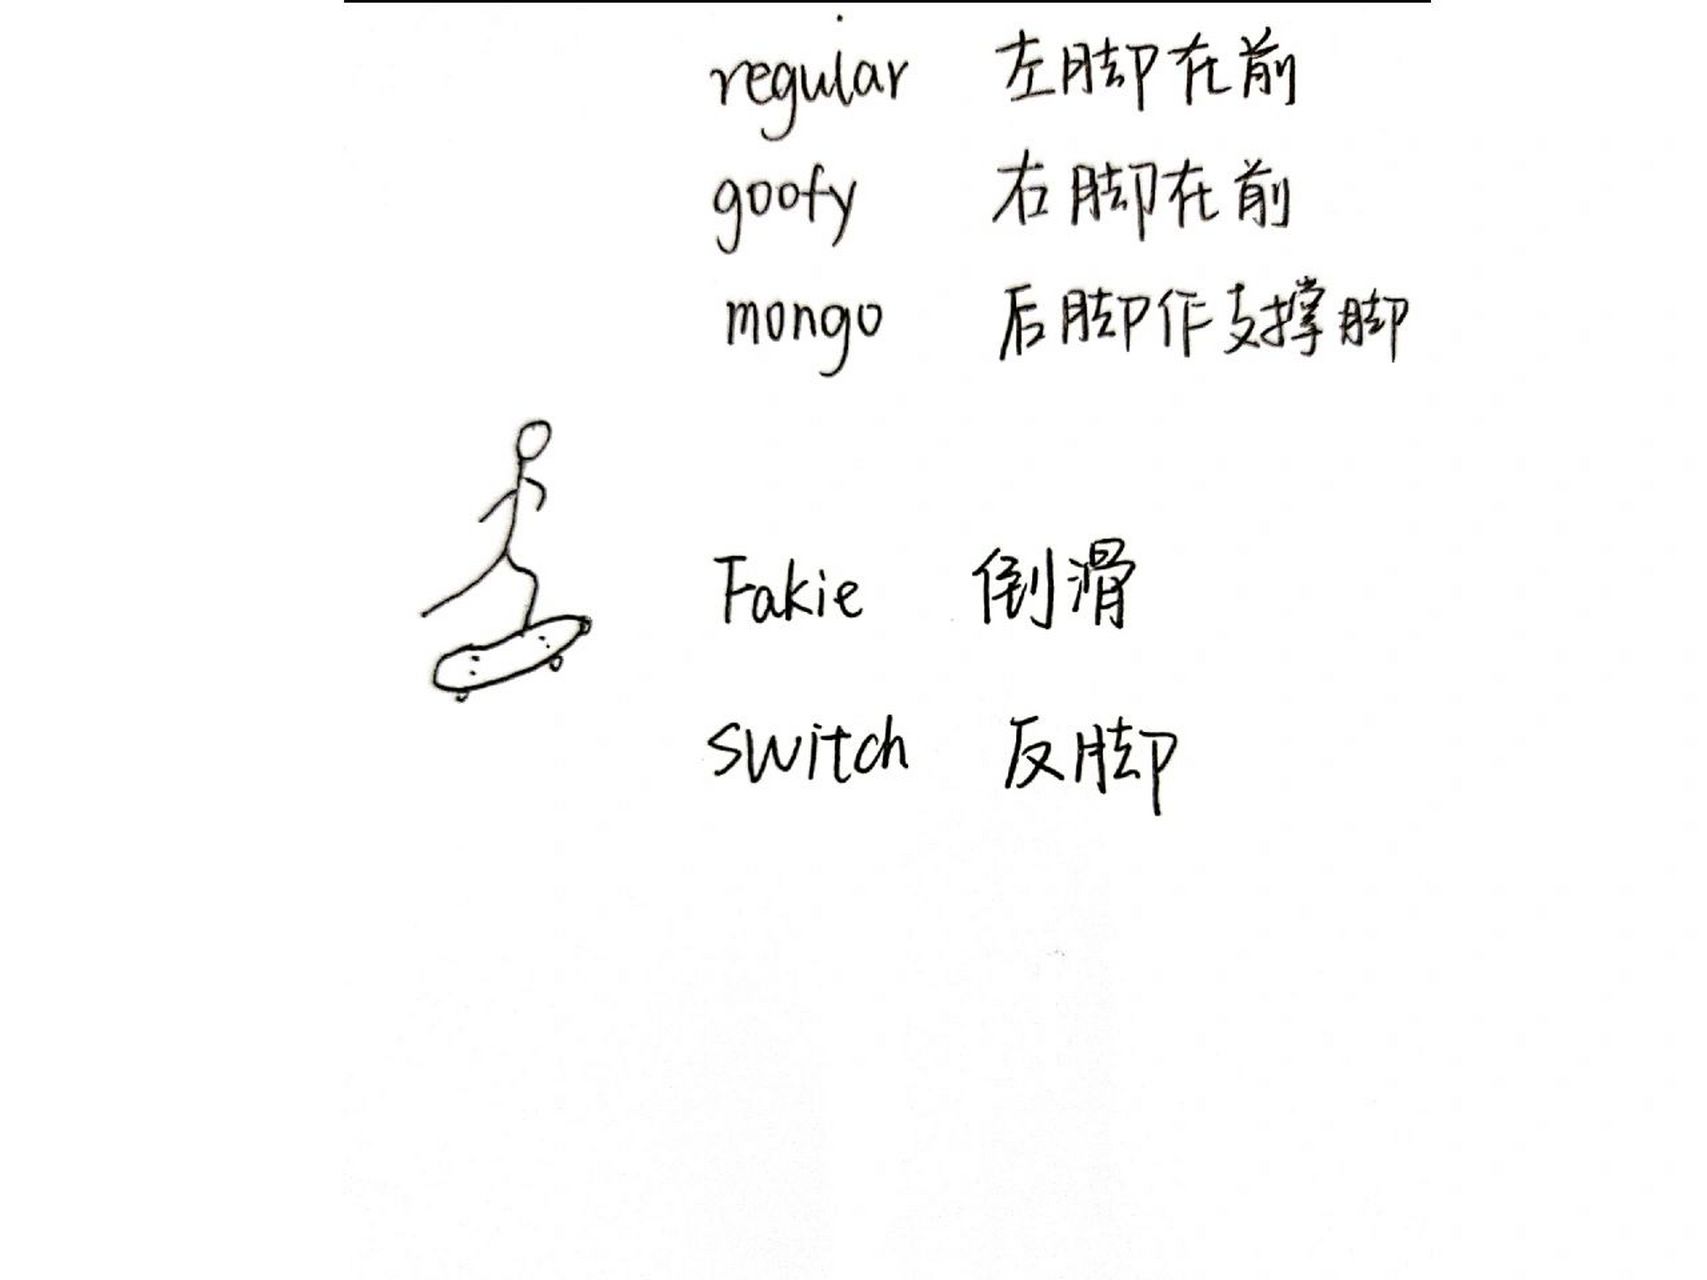 regular 左脚在前
goofy 右脚在前
mongo 后脚作支撑脚
Fakie 倒滑
switch 反脚